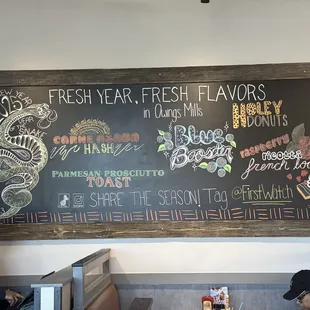 NEW YEAR
SNAKE
FRESH YEAR, FRESH FLAVORS
in Owings Mills
HOLEY
DONUTS
CARNE ASADA
HASH
Blue
Booster
RASPBERRY
RICOTTA
french toast
PARMESAN PROSCIUTTO
TOAST
SHARE THE SEASON! Tag
@FirstWatch